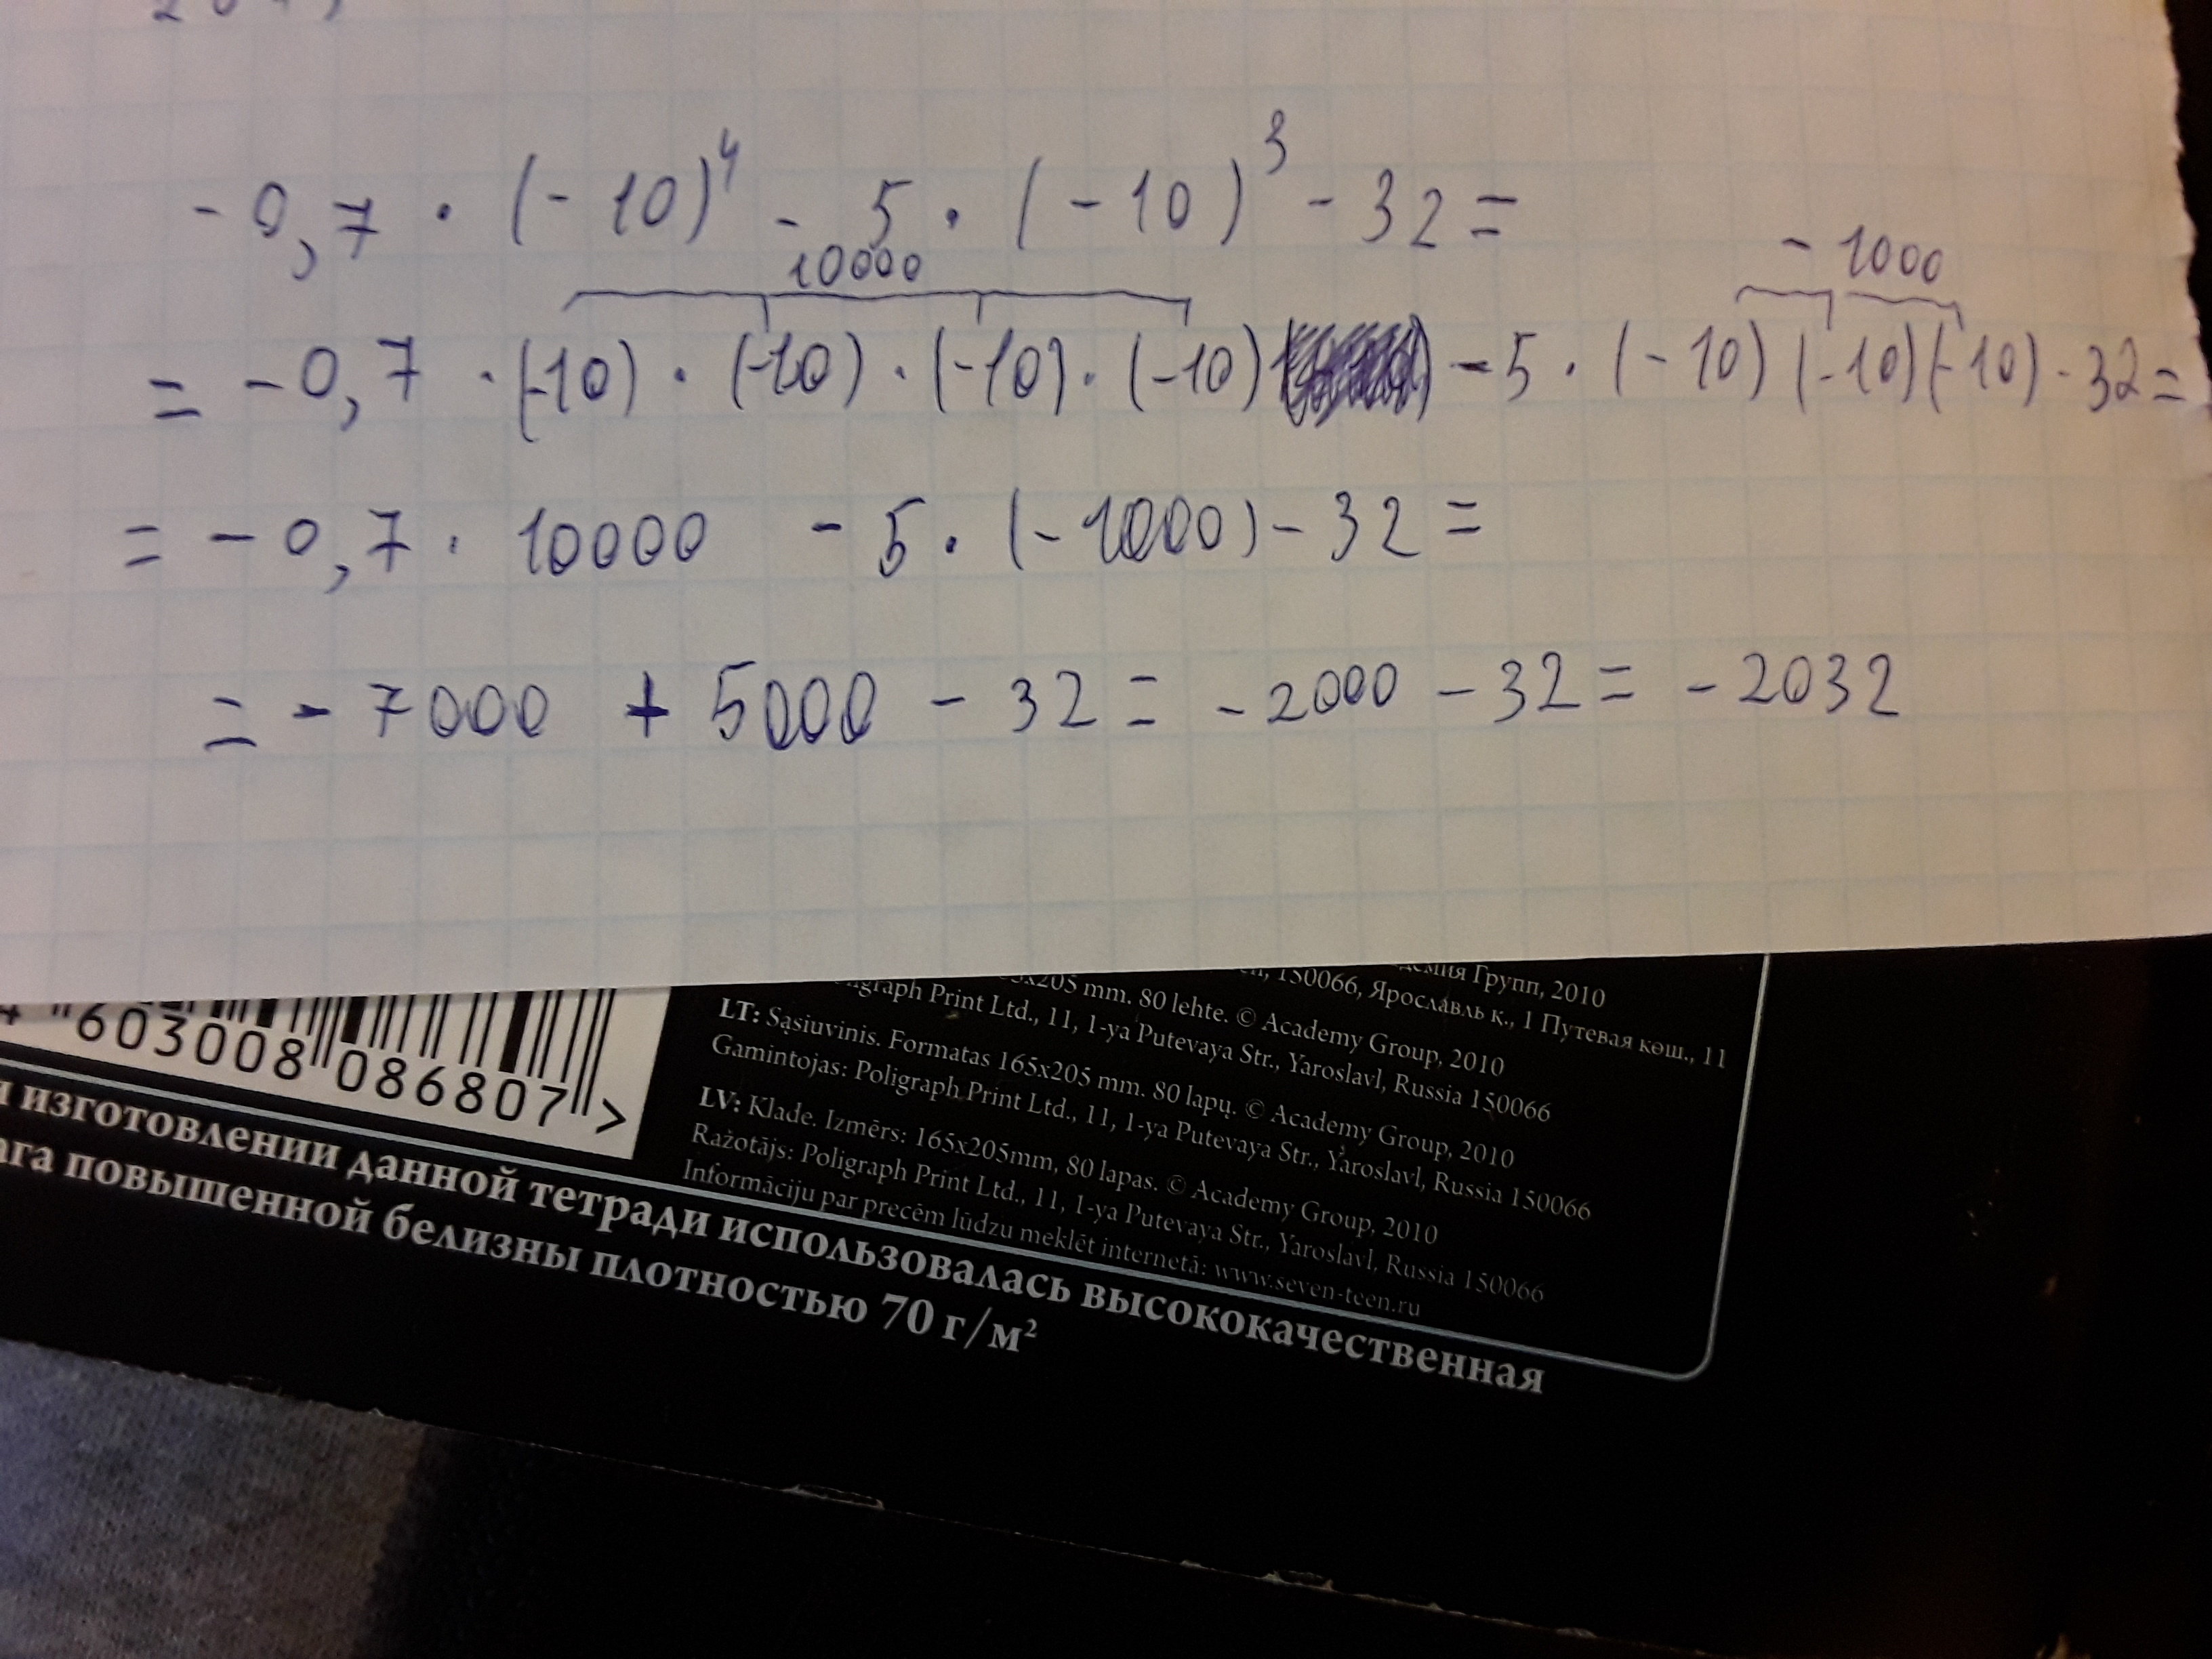 -0,7 · (-10)⁴ - 5 · (-10)³ - 32 =
10000 - 1000
= -0,7 · (-10) · (-10) · (-10) · (-10) - 5 · (-10) (-10) (-10) - 32 =
= -0,7 · 10000 - 5 · (-1000) - 32 =
= - 7000 + 5000 - 32 = - 2000 - 32 = - 2032
Групп, 2010
150066, Ярославль к., 1 Путевая кош., 11
mm. 80 lehte. © Academy Group, 2010
Print Ltd., 11, 1-ya Putevaya Str., Yaroslavl, Russia 150066
LT: Sąsiuvinis. Formatas 165x205 mm. 80 lapų. © Academy Group, 2010
Gamintojas: Poligraph Print Ltd., 11, 1-ya Putevaya Str., Yaroslavl, Russia 150066
LV: Klade. Izmērs: 165x205mm, 80 lapas. © Academy Group, 2010
Ražotājs: Poligraph Print Ltd., 11, 1-ya Putevaya Str., Yaroslavl, Russia 150066
Informāciju par precēm lūdzu meklēt internetā: www.seven-teen.ru
603008 086807 >
изготовлении данной тетради использовалась высококачественная
повышенной белизны плотностью 70 г/м²